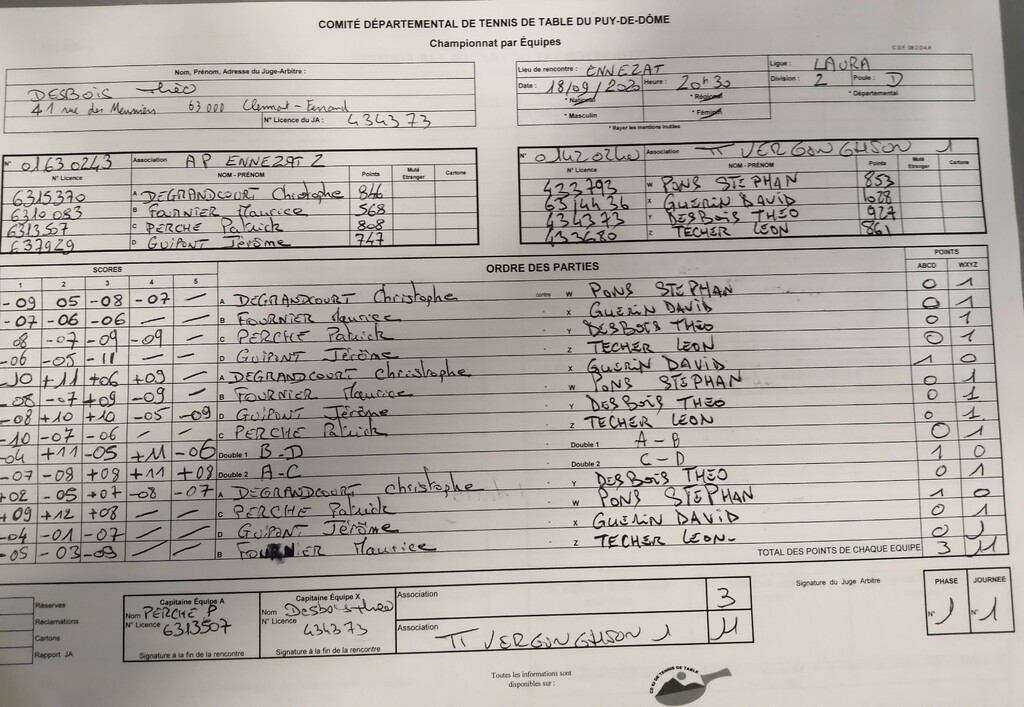 COMITÉ DÉPARTEMENTAL DE TENNIS DE TABLE DU PUY-DE-DÔME
Championnat par Équipes
Nom, Prénom, Adresse du Juge-Arbitre :
DESBOIS théo
41 rue des Meuniers 63000 Clermont-Ferrand
N° Licence du JA : 434373
Lieu de rencontre : ENNEZAT Ligue : LAURA
Date : 18/09/2020 Heure : 20h30 Division : 2 Poule : D
* National * Régional * Départemental
* Masculin * Féminin
* Rayer les mentions inutiles
N° 01630243 Association AP ENNEZAT 2
N° Licence NOM - PRÉNOM Points Muté Etranger Cartons
6315370 A DEGRANDCOURT Christophe 846
6310083 B FOURNIER Maurice 568
6313507 C PERCHE Patrick 808
637929 D GUIPONT Jérôme 747
N° Association TT VERGONGHEON 1
N° Licence NOM - PRÉNOM Points Muté Etranger Cartons
433793 W PONS STEPHAN 853
6314436 X GUERIN DAVID 628
434373 Y DESBOIS THEO 927
433680 Z TECHER LEON 861
SCORES ORDRE DES PARTIES POINTS
1 2 3 4 5 ABCD WXYZ
-09 05 -08 -07 — A DEGRANDCOURT Christophe contre W PONS STEPHAN 0 1
-07 -06 -06 — — B FOURNIER Maurice X GUERIN DAVID 0 1
08 -07 -09 -09 — C PERCHE Patrick Y DESBOIS THEO 0 1
-06 -05 -11 — — D GUIPONT Jérôme Z TECHER LEON 0 1
-10 +11 +06 +09 — A DEGRANDCOURT Christophe X GUERIN DAVID 1 0
-08 -07 +09 -09 — B FOURNIER Maurice W PONS STEPHAN 0 1
-08 +10 +10 -05 -09 D GUIPONT Jérôme Y DESBOIS THEO 0 1
-10 -07 -06 — — C PERCHE Patrick Z TECHER LEON 0 1
-04 +11 -05 +11 -06 Double 1 B-D Double 1 A-B 0 1
-07 -08 +08 +11 +08 Double 2 A-C Double 2 C-D 1 0
+02 -05 +07 -08 -07 A DEGRANDCOURT Christophe Y DESBOIS THEO 0 1
+09 +12 +08 — — C PERCHE Patrick W PONS STEPHAN 1 0
-04 -01 -07 — — D GUIPONT Jérôme X GUERIN DAVID 0 1
-05 -03 -09 — — B FOURNIER Maurice Z TECHER LEON 0 1
TOTAL DES POINTS DE CHAQUE EQUIPE 3 11
Réserves
Réclamations
Cartons
Rapport JA
Capitaine Équipe A
Nom PERCHE P
N° Licence 6313507
Signature à la fin de la rencontre
Capitaine Équipe X
Nom Desbois théo
N° Licence 434373
Signature à la fin de la rencontre
Association 3
Association TT VERGONGHEON 1 11
Signature du Juge Arbitre
PHASE JOURNEE
N° 1 N° 1
Toutes les informations sont
disponibles sur :